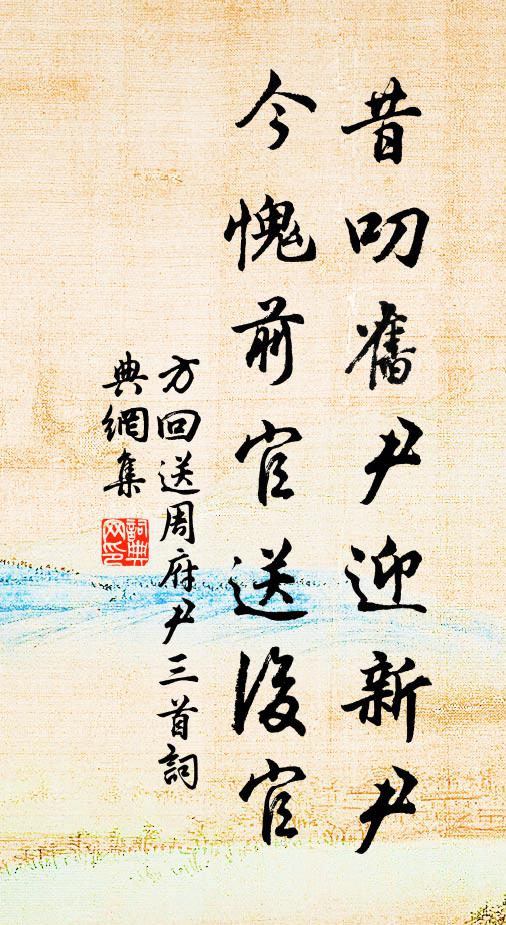 昔叨舊尹迎新尹
今愧前官送後官
方回送周府尹三首詞
典網集
詞典网印